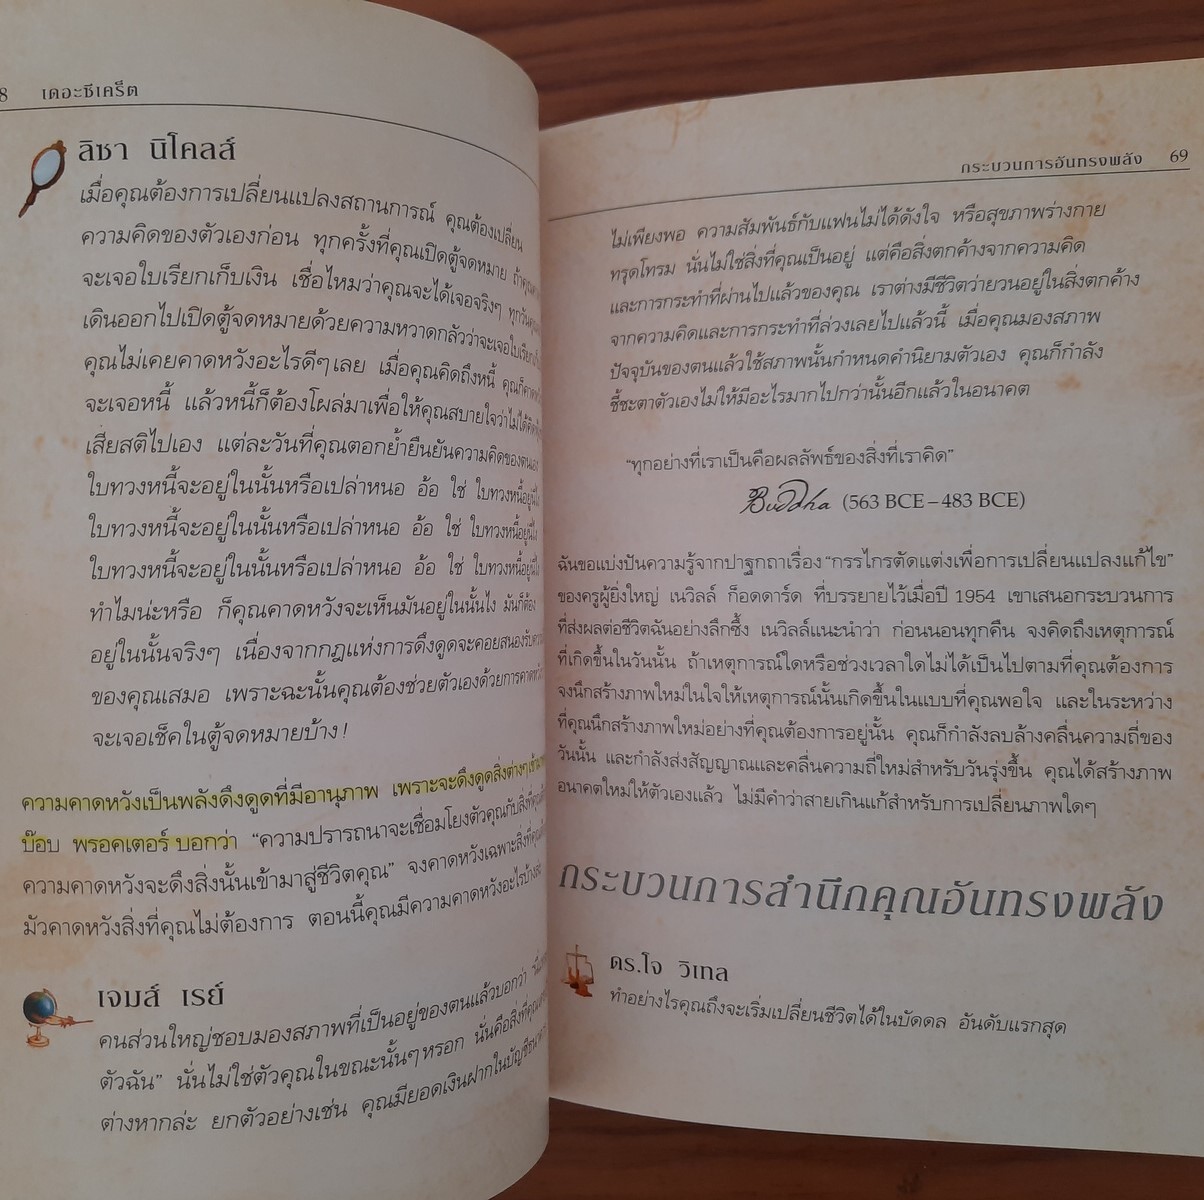 8 เดอะซีเคร็ต
ลิซา นิโคลส์
เมื่อคุณต้องการเปลี่ยนแปลงสถานการณ์ คุณต้องเปลี่ยน
ความคิดของตัวเองก่อน ทุกครั้งที่คุณเปิดตู้จดหมาย
จะเจอใบเรียกเก็บเงิน เชื่อไหมว่าคุณจะได้เจอจริงๆ
เดินออกไปเปิดตู้จดหมายด้วยความหวาดกลัวว่าจะเจอใบเรียกเก็บ
คุณไม่เคยคาดหวังอะไรดีๆ เลย เมื่อคุณคิดถึงหนี้
จะเจอหนี้ แล้วหนี้ก็ต้องโผล่มาเพื่อให้คุณสบายใจว่าไม่ได้
เสียสติไปเอง แต่ละวันที่คุณตอกย้ำยืนยันความคิดของตนเอง
ใบทวงหนี้จะอยู่ในนั้นหรือเปล่าหนอ อ้อ ใช่ ใบทวงหนี้อยู่
ใบทวงหนี้จะอยู่ในนั้นหรือเปล่าหนอ อ้อ ใช่ ใบทวงหนี้อยู่
ใบทวงหนี้จะอยู่ในนั้นหรือเปล่าหนอ อ้อ ใช่ ใบทวงหนี้อยู่
ทำไมน่ะหรือ ก็คุณคาดหวังจะเห็นมันอยู่ในนั้นไง มันก็ต้อง
อยู่ในนั้นจริงๆ เนื่องจากกฎแห่งการดึงดูดจะคอยสนองรับ
ของคุณเสมอ เพราะฉะนั้นคุณต้องช่วยตัวเองด้วยการคาดหวัง
จะเจอเช็คในตู้จดหมายบ้าง!
ความคาดหวังเป็นพลังดึงดูดที่มีอานุภาพ เพราะจะดึงดูดสิ่งต่างๆ
บ๊อบ พรอคเตอร์ บอกว่า “ความปรารถนาจะเชื่อมโยงตัวคุณกับสิ่งที่คุณ
ความคาดหวังจะดึงสิ่งนั้นเข้ามาสู่ชีวิตคุณ” จงคาดหวังเฉพาะสิ่งที่คุณ
มัวคาดหวังสิ่งที่คุณไม่ต้องการ ตอนนี้คุณมีความคาดหวังอะไรบ้าง
เจมส์ เรย์
คนส่วนใหญ่ชอบมองสภาพที่เป็นอยู่ของตนแล้วบอกว่า
ตัวฉัน” นั่นไม่ใช่ตัวคุณในขณะนั้นๆ หรอก นั่นคือสิ่งที่คุณ
ต่างหากล่ะ ยกตัวอย่างเช่น คุณมียอดเงินฝากในบัญชีธนาคาร
กระบวนการอันทรงพลัง 69
ไม่เพียงพอ ความสัมพันธ์กับแฟนไม่ได้ดังใจ หรือสุขภาพร่างกาย
ทรุดโทรม นั่นไม่ใช่สิ่งที่คุณเป็นอยู่ แต่คือสิ่งตกค้างจากความคิด
และการกระทำที่ผ่านไปแล้วของคุณ เราต่างมีชีวิตว่ายวนอยู่ในสิ่งตกค้าง
จากความคิดและการกระทำที่ล่วงเลยไปแล้วนี้ เมื่อคุณมองสภาพ
ปัจจุบันของตนแล้วใช้สภาพนั้นกำหนดคำนิยามตัวเอง คุณก็กำลัง
ชี้ชะตาตัวเองไม่ให้มีอะไรมากไปกว่านั้นอีกแล้วในอนาคต
“ทุกอย่างที่เราเป็นคือผลลัพธ์ของสิ่งที่เราคิด”
Buddha (563 BCE – 483 BCE)
ฉันขอแบ่งปันความรู้จากปาฐกถาเรื่อง “กรรไกรตัดแต่งเพื่อการเปลี่ยนแปลงแก้ไข”
ของครูผู้ยิ่งใหญ่ เนวิลล์ ก็อดดาร์ด ที่บรรยายไว้เมื่อปี 1954 เขาเสนอกระบวนการ
ที่ส่งผลต่อชีวิตฉันอย่างลึกซึ้ง เนวิลล์แนะนำว่า ก่อนนอนทุกคืน จงคิดถึงเหตุการณ์
ที่เกิดขึ้นในวันนั้น ถ้าเหตุการณ์ใดหรือช่วงเวลาใดไม่ได้เป็นไปตามที่คุณต้องการ
จงนึกสร้างภาพใหม่ในใจให้เหตุการณ์นั้นเกิดขึ้นในแบบที่คุณพอใจ และในระหว่าง
ที่คุณนึกสร้างภาพใหม่อย่างที่คุณต้องการอยู่นั้น คุณก็กำลังลบล้างคลื่นความถี่ของ
วันนั้น และกำลังส่งสัญญาณและคลื่นความถี่ใหม่สำหรับวันรุ่งขึ้น คุณได้สร้างภาพ
อนาคตใหม่ให้ตัวเองแล้ว ไม่มีคำว่าสายเกินแก้สำหรับการเปลี่ยนภาพใดๆ
กระบวนการสำนึกคุณอันทรงพลัง
ดร.โจ วิเทล
ทำอย่างไรคุณถึงจะเริ่มเปลี่ยนชีวิตได้ในบัดดล อันดับแรกสุด